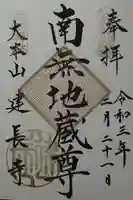 奉拝
令和三年
三月二十一日
南無地蔵尊
大本山
建長寺